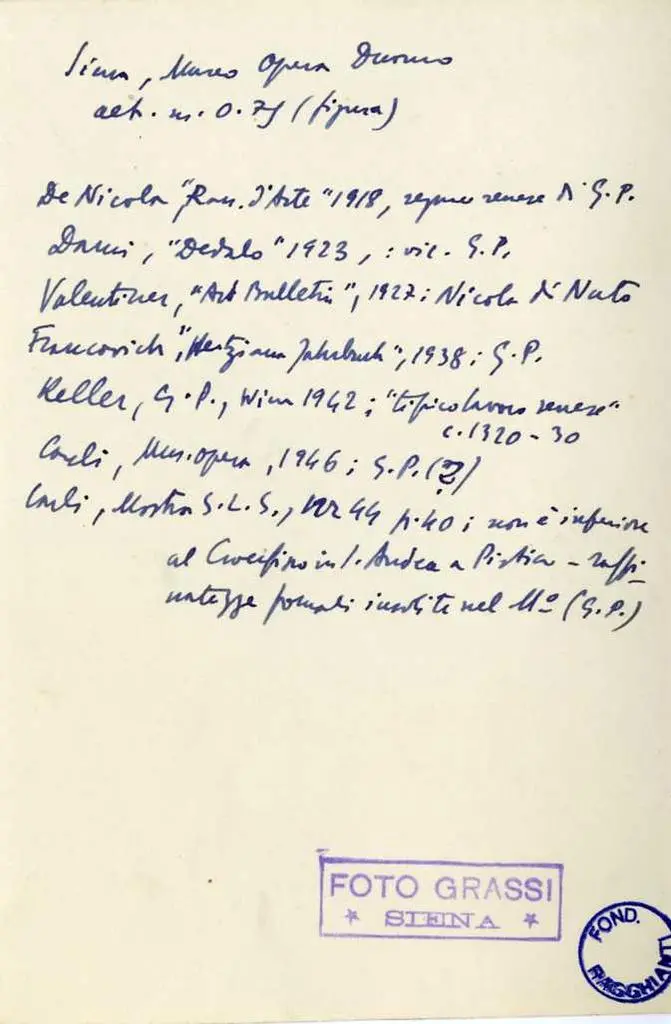 Siena, Museo Opera Duomo
alt. m. 0.75 (figura)
De Nicola "Rass. d'Arte" 1918, senese di G.P.
Dami, "Dedalo" 1923, : vic. G.P.
Valentiner, "Art Bulletin", 1927: Nicola di Nuto
Francovich, "Hertziana Jahrbuch", 1938; G.P.
Keller, G.P., Wien 1942; "tipico lavoro senese"
c. 1320-30
Carli, Mus. opera, 1946; G.P. (?)
Carli, Mostra S.L.S., 44 p. 40; non è inferiore
al Crocifisso in S. Andrea a Pistoia - raffi-
natezze formali insolite nel Mº (G.P.)
FOTO GRASSI
* SIENA *
FOND.
RAGGHIANTI